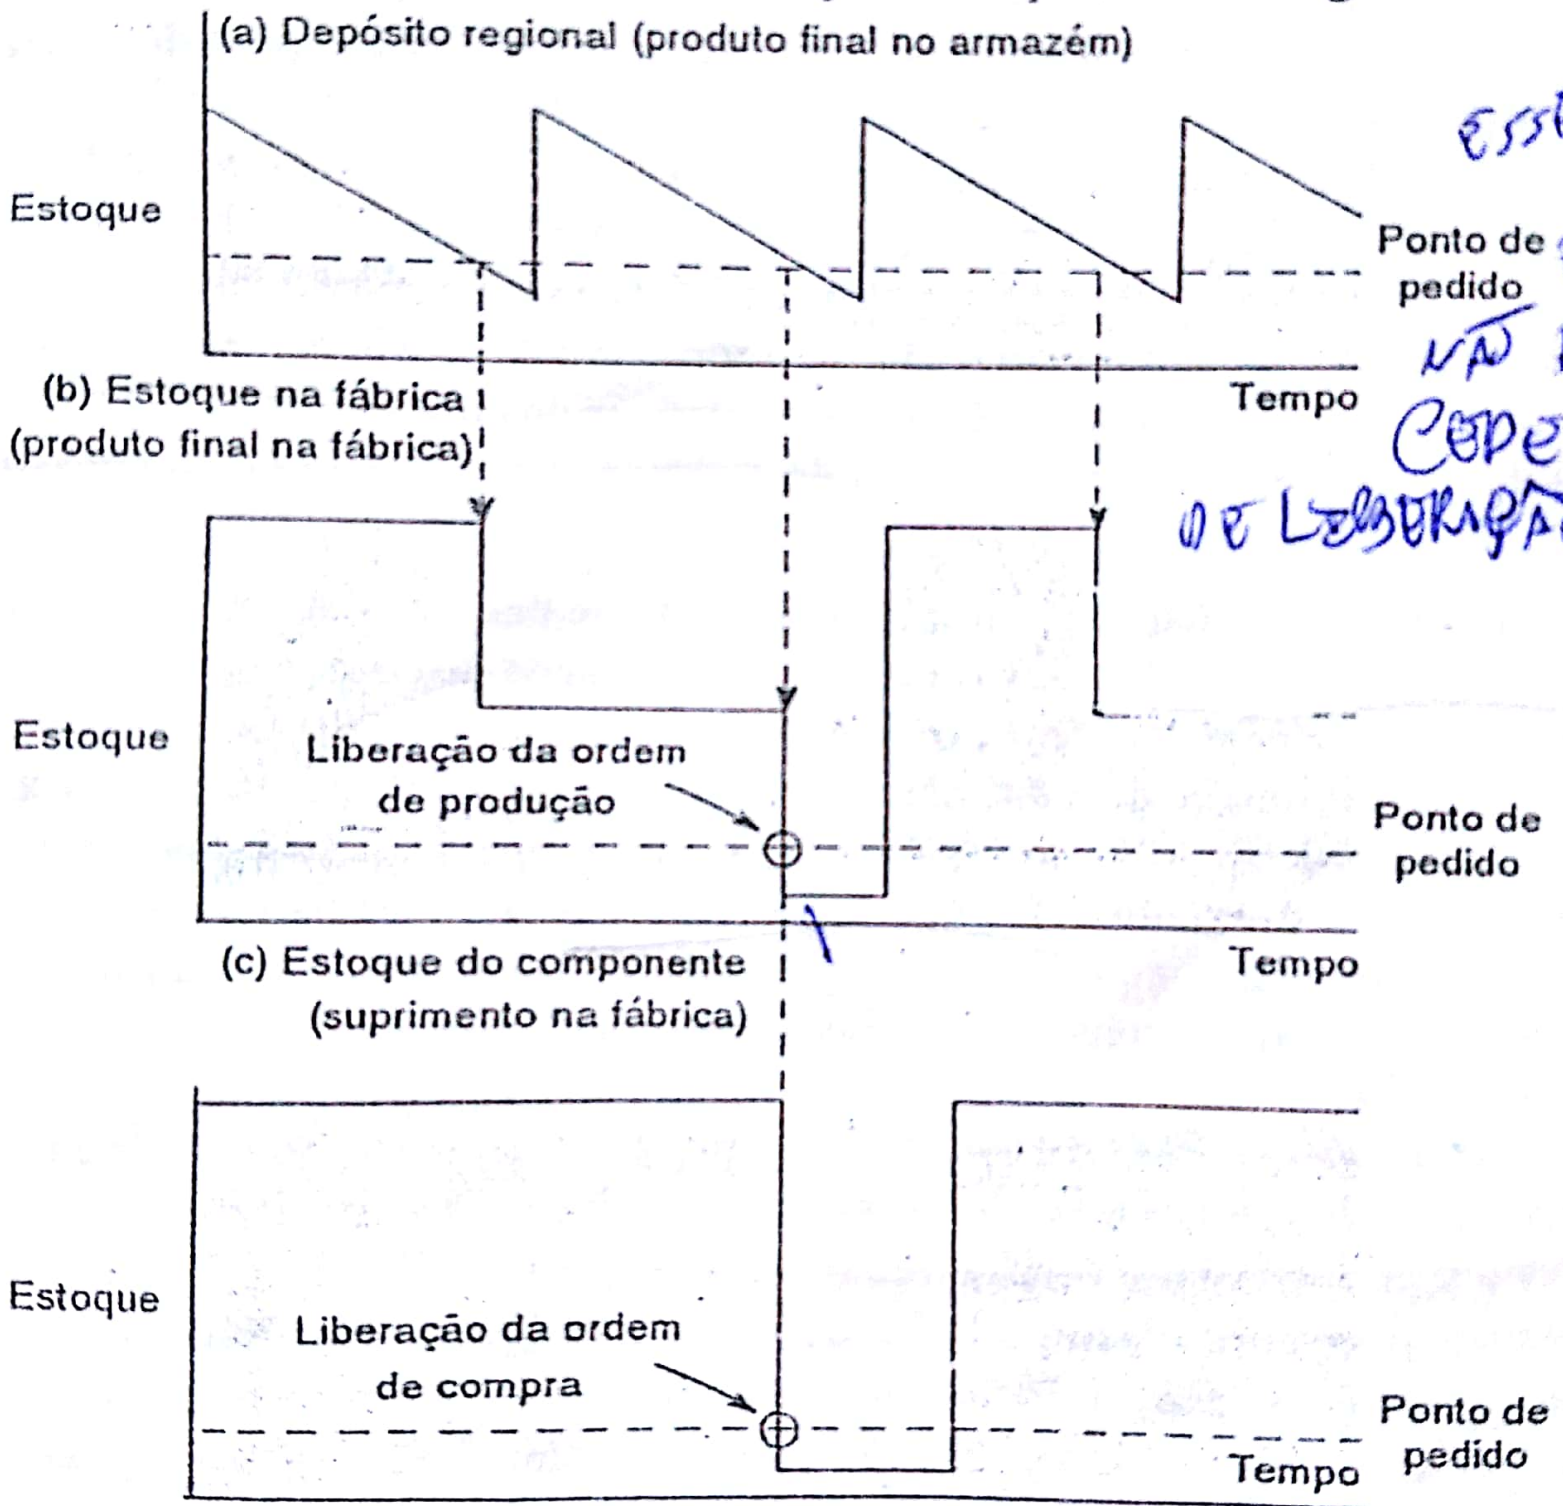 (a) Depósito regional (produto final no armazém)
Estoque
Ponto de
pedido
NÃO
Tempo
(b) Estoque na fábrica
(produto final na fábrica)
DE LIBERAÇÃ
Estoque
Liberação da ordem
de produção
Ponto de
pedido
Tempo
(c) Estoque do componente
(suprimento na fábrica)
Estoque
Liberação da ordem
de compra
Ponto de
pedido
Tempo